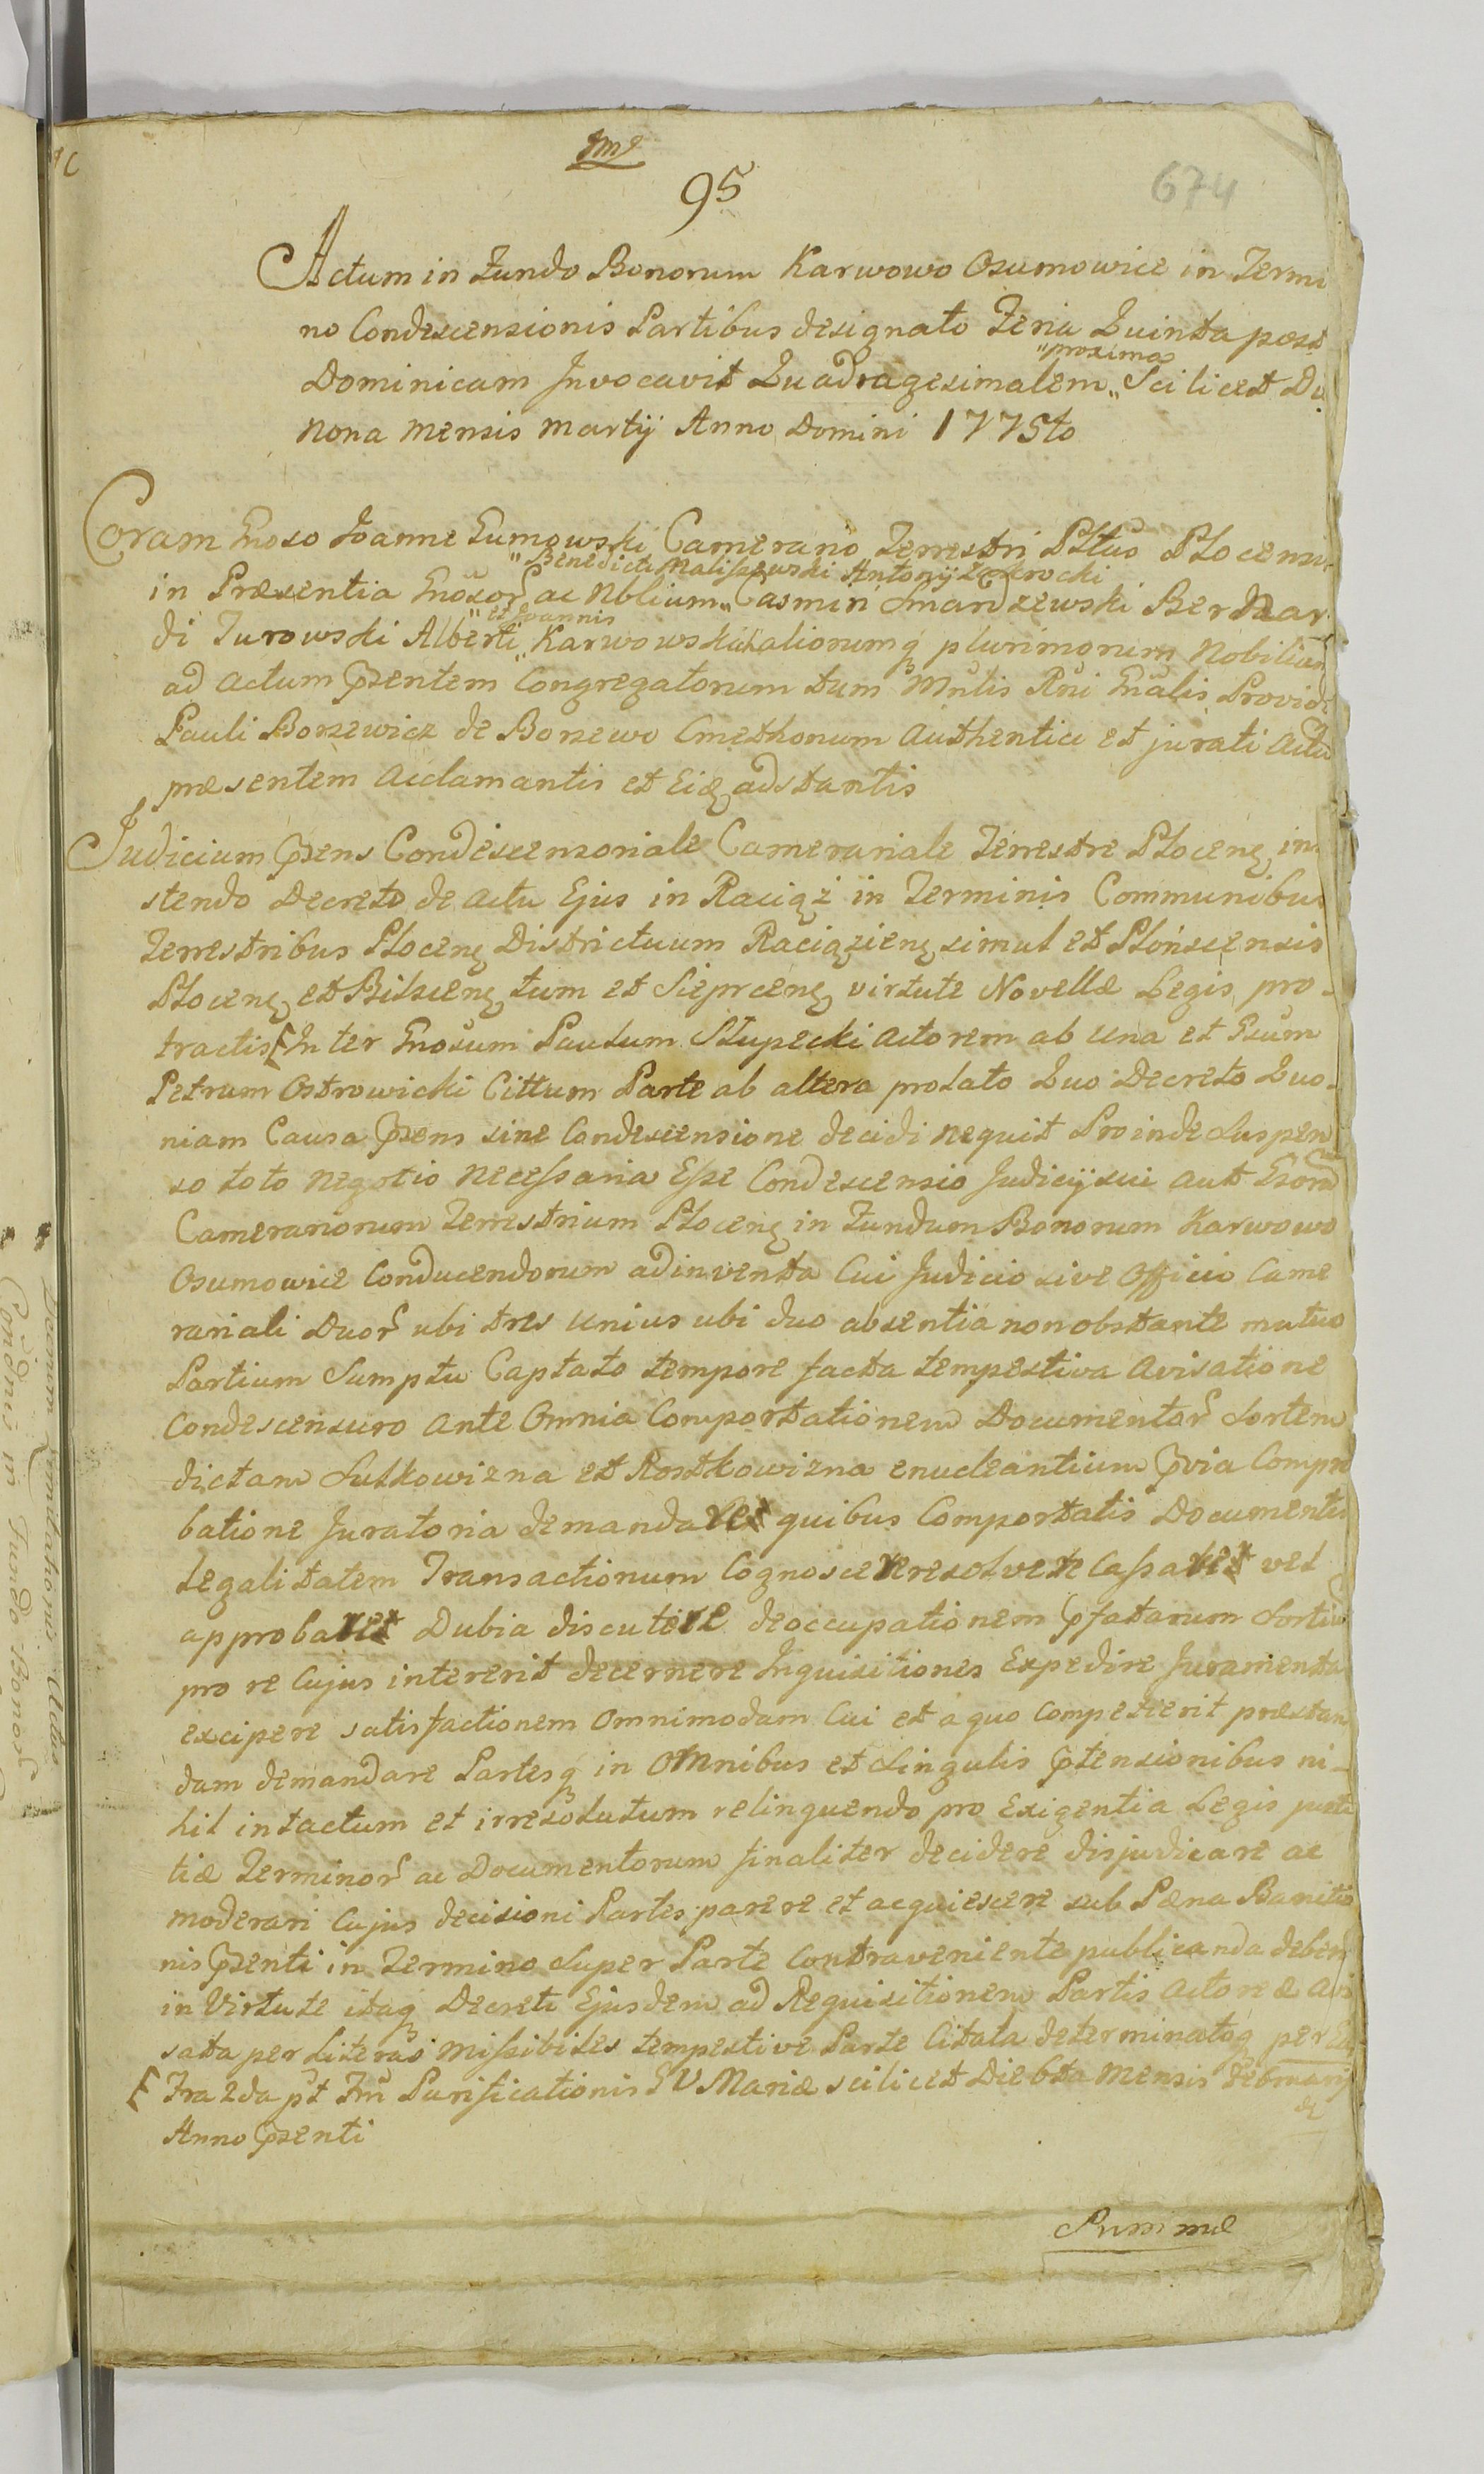 95
674
Actum in Fundo Bonorum Karwowo Osumowice in Termi
no Condescensionis Partibus designato Feria Quinta post
"proxima
Dominicam Invocavit Quadragesimalem" Scilicet Di
nona mensis Martij Anno Domini 1775to
Coram Gnoso Joanne Gumowski Camerario Terrestri Pltus Plocensi
"Benedicti Maliszewski Antonij
in Præsentia Gnosor ac Nblium" Casmiri Smardzewski Bernar
"et Joannis
di Turowski Alberti" Karwowskich aliorumq plurimorum Nobilium
ad actum Pzentem Congregatorum tum Mntis Rni Gnalis Providi
Pauli Borzewicz de Borzewo Cmethonum authentici et jurati actu
præsentem acclamantis et Eiq adstantis
Judicium Pzens Condescensoriale Camerariale Terrestre Plocenq in
stendo Decreto de actu Ejus in Raciąż in Terminis Communibus
Terrestribus Plocenq Districtuum Raciązienq simul et Płonscensis
Plocenq et Bilscenq tum et Sieprcenq virtute Novellæ Legis pro-
tractis Inter Gnosum Paulum Słupecki actorem ab una et Gsum
Petrum Ostrowicki Cittum Parte ab altera prolato Quo Decreto Quo-
niam Causa Pzens sine Condescensione decidi nequit Proinde Suspen
so toto negotio necessaria Esse Condescensio Judicij sui aut Gsorum
Camerariorum Terrestrium Plocenq in Fundum Bonorum Karwowo
Osumowice Conducendorum adinventa Cui Judicio sive Officio Came
rariali Duor ubi tres unius ubi duo absentia non obstante mutuo
Partium Sumptu Captato tempore facta tempestiva avisatione
Condescensuro ante Omnia Comportationem Documentor Sortem
dictam Sutkowizna et Rostkowizna enucleantium Pvia Compro
batione Juratoria demandaret quibus Comportatis Documentis
Legalitatem Transactionum Cognoscere resolvere Cassaret vel
approbaret Dubia discutere deoccupationem Pfatarum Sortium
pro re Cujus intererit decernere Inquisitiones Expedire Juramenta
excipere satisfactionem Omnimodam Cui et a quo Competierit præstan
dam demandare Partesq in Omnibus et Singulis Ptensionibus ni-
hil intactum et irresolutum relinquendo pro Exigentia Legis justi
tiæ Terminor ac Documentorum finaliter decidere disjudicare ac
moderari Cujus decisioni Partes parere et acquiescere sub Pœna Bannitio
nis Pzenti in Termino Super Parte Contraveniente publicanda deben
in Virtute itaq Decreti Ejusdem ad Requisitionem Partis Actoreæ avi
sata per Literas Missibiles tempestive Parte Citata determinatoq per
Fra 2da pt Fm Purificationis B V Mariæ scilicet Die 6ta Mensis Februarij
Anno Pzenti
Decimum Limitationis Actus
Condnis in Fundo Bonor